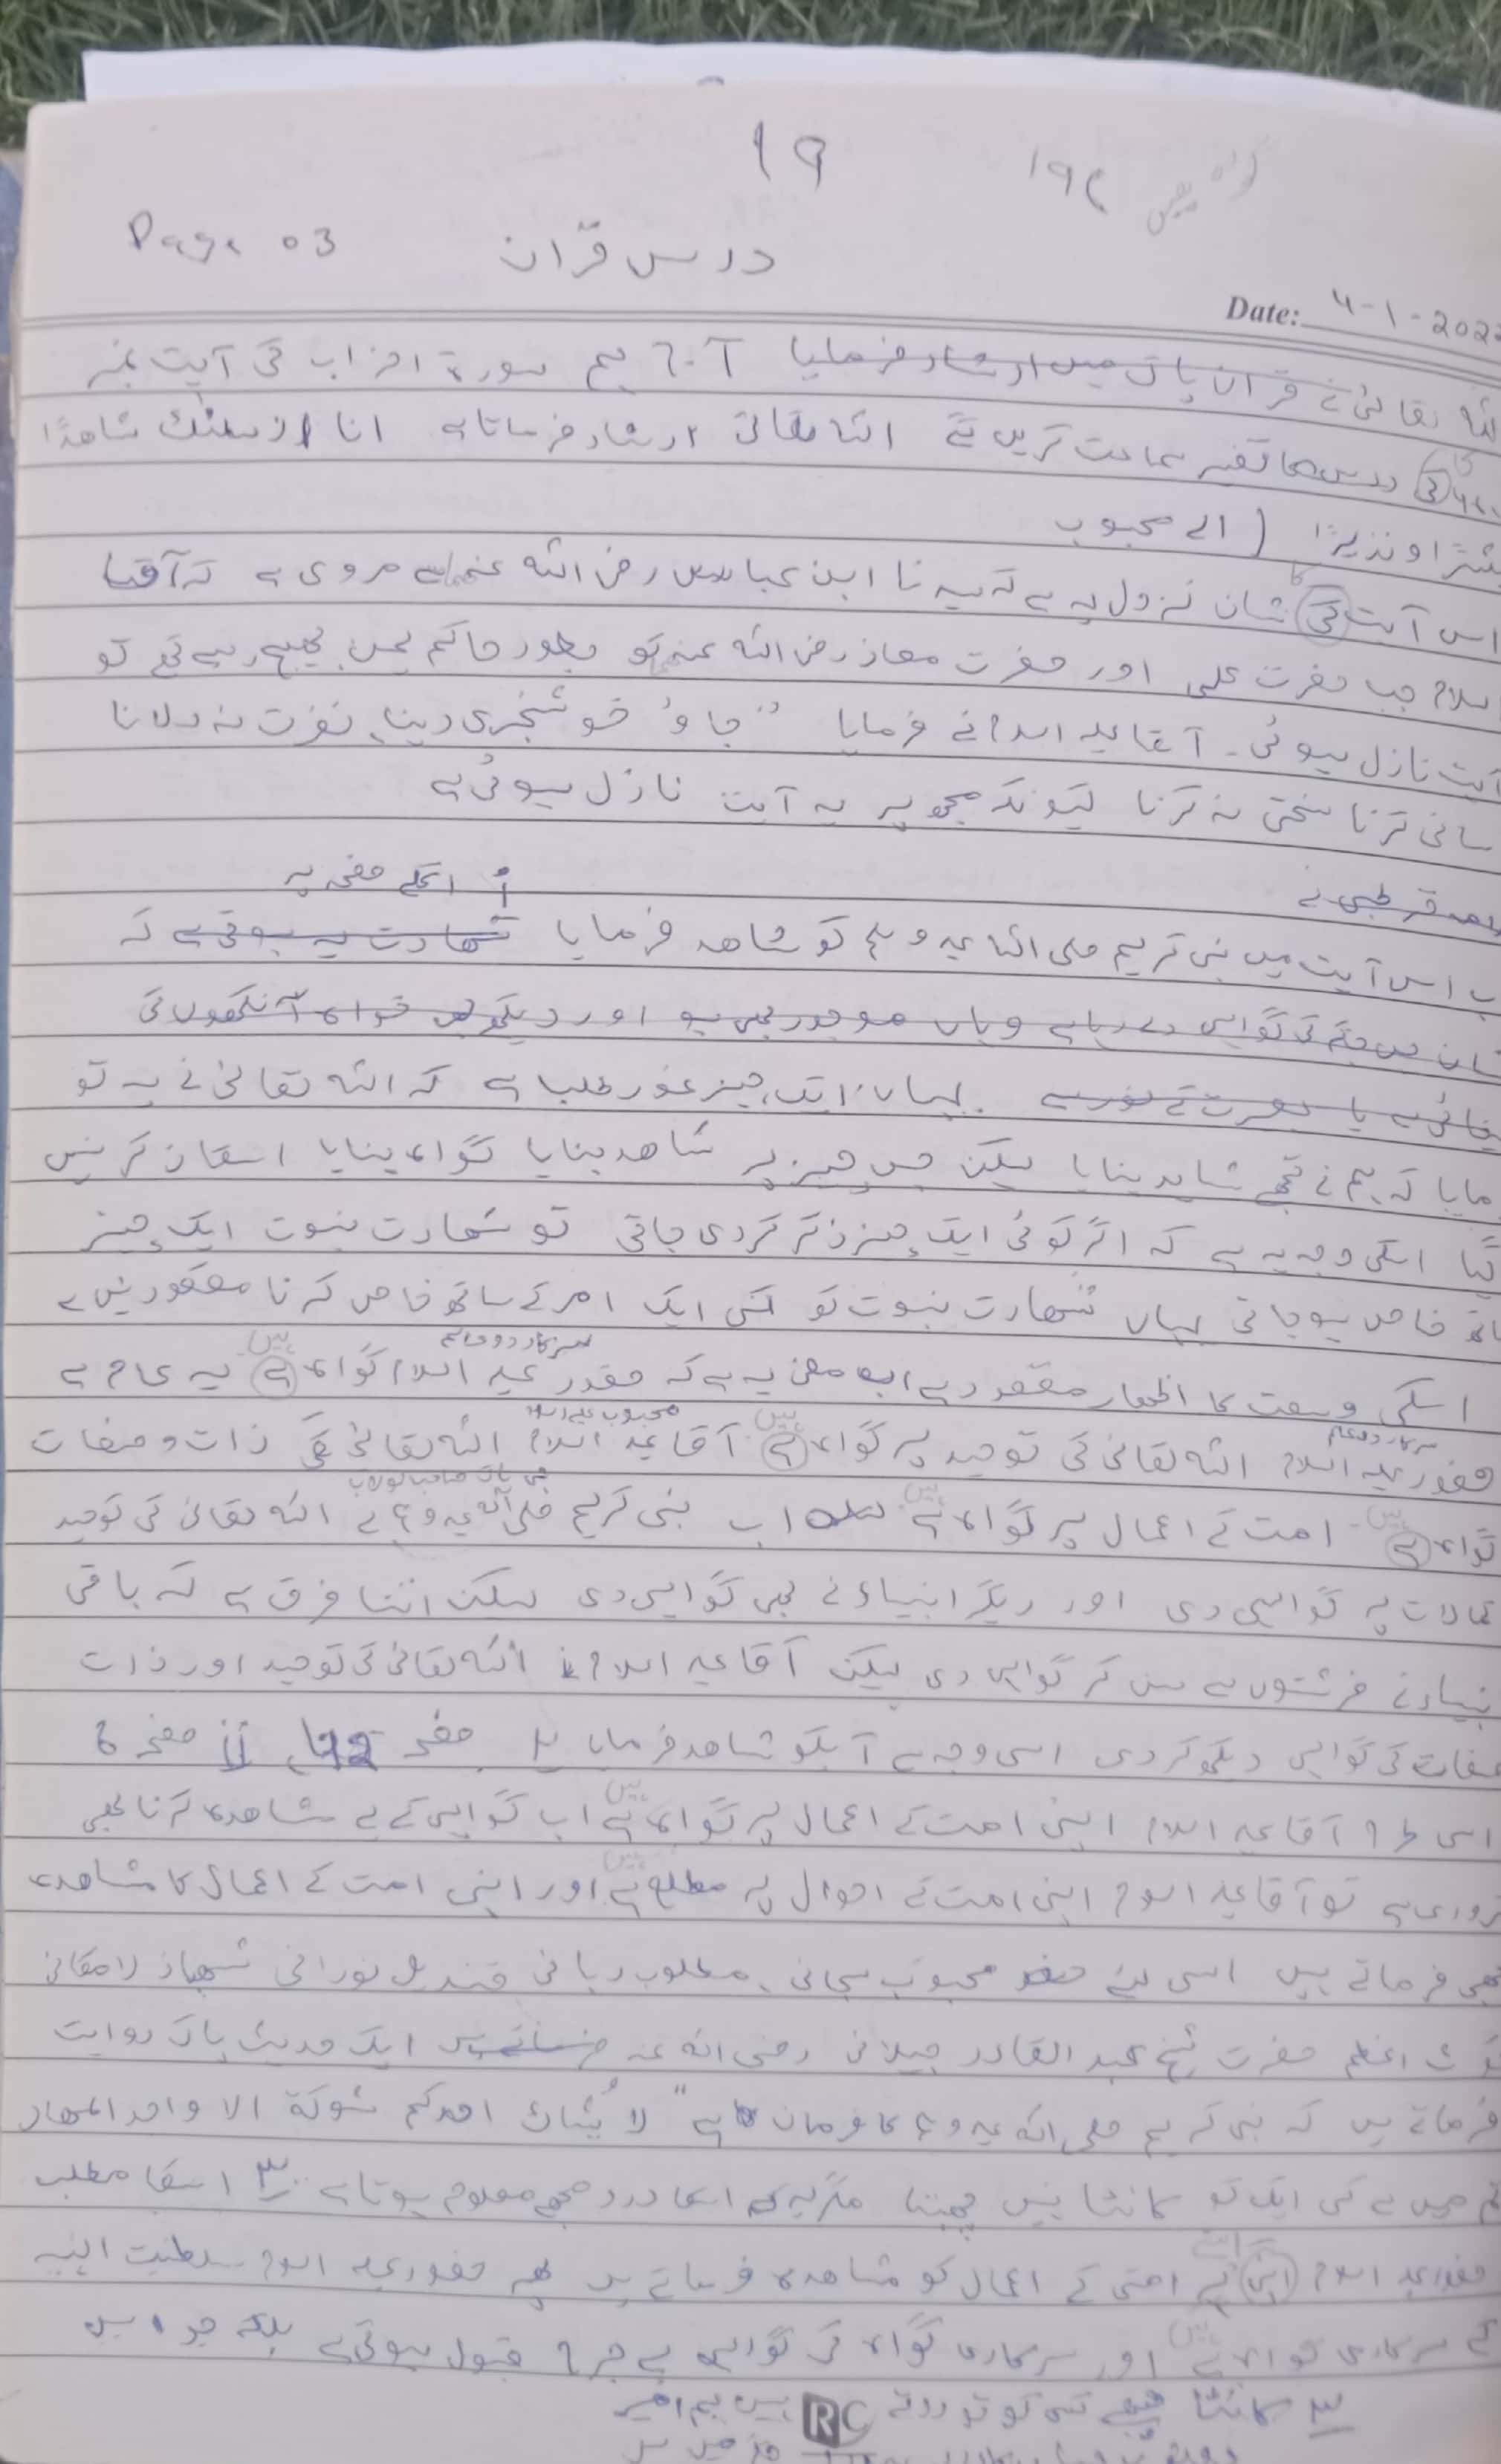 19
Page 03
درس قرآن
Date: 4-1-202
تعالیٰ نے قرآن پاک میں ارشاد فرمایا آج ہم سورۃ احزاب کی آیت نمبر
کی درس کا تفسیر سماعت کریں گے اللہ تعالیٰ ارشاد فرماتا ہے انا ارسلنٰك شاھدًا
و نذیرًا (اے محبوب
اس آیت کی کا شان نزول یہ ہے کہ سیدنا ابن عباس رضی اللہ عنہما سے مروی ہے کہ آقا
جب حضرت علی اور حضرت معاذ رضی اللہ عنہ کو بطور حاکم یمن بھیج رہے تھے تو
آیت نازل ہوئی۔ آقا علیہ السلام نے فرمایا "جاؤ خوشخبری دینا، نفرت نہ دلانا
کرنا سختی نہ کرنا کیونکہ مجھ پر یہ آیت نازل ہوئی ہے
اگلے صفحہ پہ
اس آیت میں نبی کریم صلی اللہ علیہ وسلم کو شاھد فرمایا شھادت یہ ہوتی ہے کہ
جس جگہ کی گواہی دے رہا ہے وہاں موجود بھی ہو اور دیکھے بھی خواہ آنکھوں کی
یا بصیرت کے نور سے ۔ یہاں ایک چیز غور طلب ہے کہ اللہ تعالیٰ نے یہ تو
کہ ہم نے تجھے شاہد بنایا لیکن جس چیز پر شاھد بنایا گواہ بنایا اسکا ذکر نہیں
اسکی وجہ یہ ہے کہ اگر کوئی ایک چیز ذکر کر دی جاتی تو شھادت نبوت ایک چیز
خاص ہو جاتی یہاں شھادت نبوت کو کسی ایک امر کے ساتھ خاص کرنا مقصود نہیں ہے
سرکار دوعالم
اسکی وسعت کا اظھار مقصود ہے اب معنی یہ ہے کہ حضور علیہ السلام گواہ ہے ہیں یہ عام ہے
سرکار دوعالم محبوب علیہ السلام
حضور علیہ السلام اللہ تعالیٰ کی توحید پر گواہ ہے ہیں آقا علیہ السلام اللہ تعالیٰ کی ذات و صفات
گواہ ہے ہیں ۔ امت کے اعمال پر گواہ ہے ہیں اب نبی کریم صلی اللہ علیہ وسلم نے اللہ تعالیٰ کی توحید
کمالات پہ گواہی دی اور دیگر انبیاء نے بھی گواہی دی لیکن اتنا فرق ہے کہ باقی
نے فرشتوں سے سن کر گواہی دی لیکن آقا علیہ السلام نے اللہ تعالیٰ کی توحید اور ذات
صفات کی گواہی دیکھ کر دی اسی وجہ سے آپکو شاھد فرمایا صفحہ 12 صفحہ 6
اسی طرح آقا علیہ السلام اپنی امت کے اعمال پر گواہ ہے ہیں اب گواہی کے لیے مشاھدہ کرنا بھی
ضروری ہے تو آقا علیہ السلام اپنی امت کے احوال پہ مطلع ہے ہیں اور اپنی امت کے اعمال کا مشاھدہ
بھی فرماتے ہیں اسی لیئے محبوب سبحانی، مطلوب ربانی قندیل نورانی شھباز لامکانی
غوث اعظم حضرت شیخ عبد القادر جیلانی رضی اللہ عنہ فرماتے ہیں ایک حدیث پاک روایت
فرماتے ہیں کہ نبی کریم صلی اللہ علیہ وسلم کا فرمان ہے "لا یُشاك احدکم شوکة الا و اجد المھا
تم میں سے کسی ایک کو کانٹا نہیں چبھتا مگر یہ کہ اسکا درد مجھے معلوم ہوتا ہے ۳ اسکا مطلب
حضور علیہ السلام اپنے امتی کے اعمال کو مشاھدہ فرماتے ہیں پھر حضور علیہ السلام سلطنت الہیہ
کے سرکاری گواہ ہے ہیں اور سرکاری گواہ کی گواہی بے جرح قبول ہوتی ہے بلکہ جو
۳ کانٹا چبھے کسی کو تو روتے ہیں ہم امیر
RC